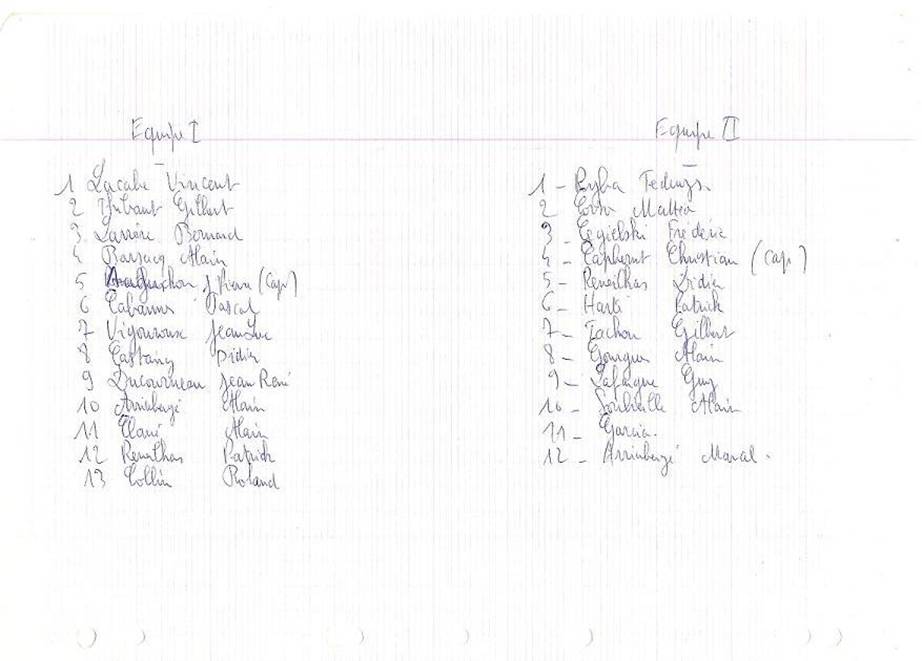 Equipe I
1 Lacabe Vincent
2 Thibaut Gilbert
3 Larrère Bernard
4 Barsacq Alain
5 J Pierre (Cap)
6 Cabannes Pascal
7 Vigouroux Jean Luc
8 Castaing Didier
9 Ducourneau Jean René
10 Arrimbergé Alain
11 Alain
12 Renailhas Patrick
13 Collin Roland
Equipe II
1 - Ryba
2
3 - Cegielski Frédéric
4 - Christian (Cap)
5 - Renailhas Didier
6 - Patrick
7 - Tachon Gilbert
8 - Gourgues Alain
9 - Lafargue Guy
10 - Alain
11 - Garcia.
12 - Arrimbergé